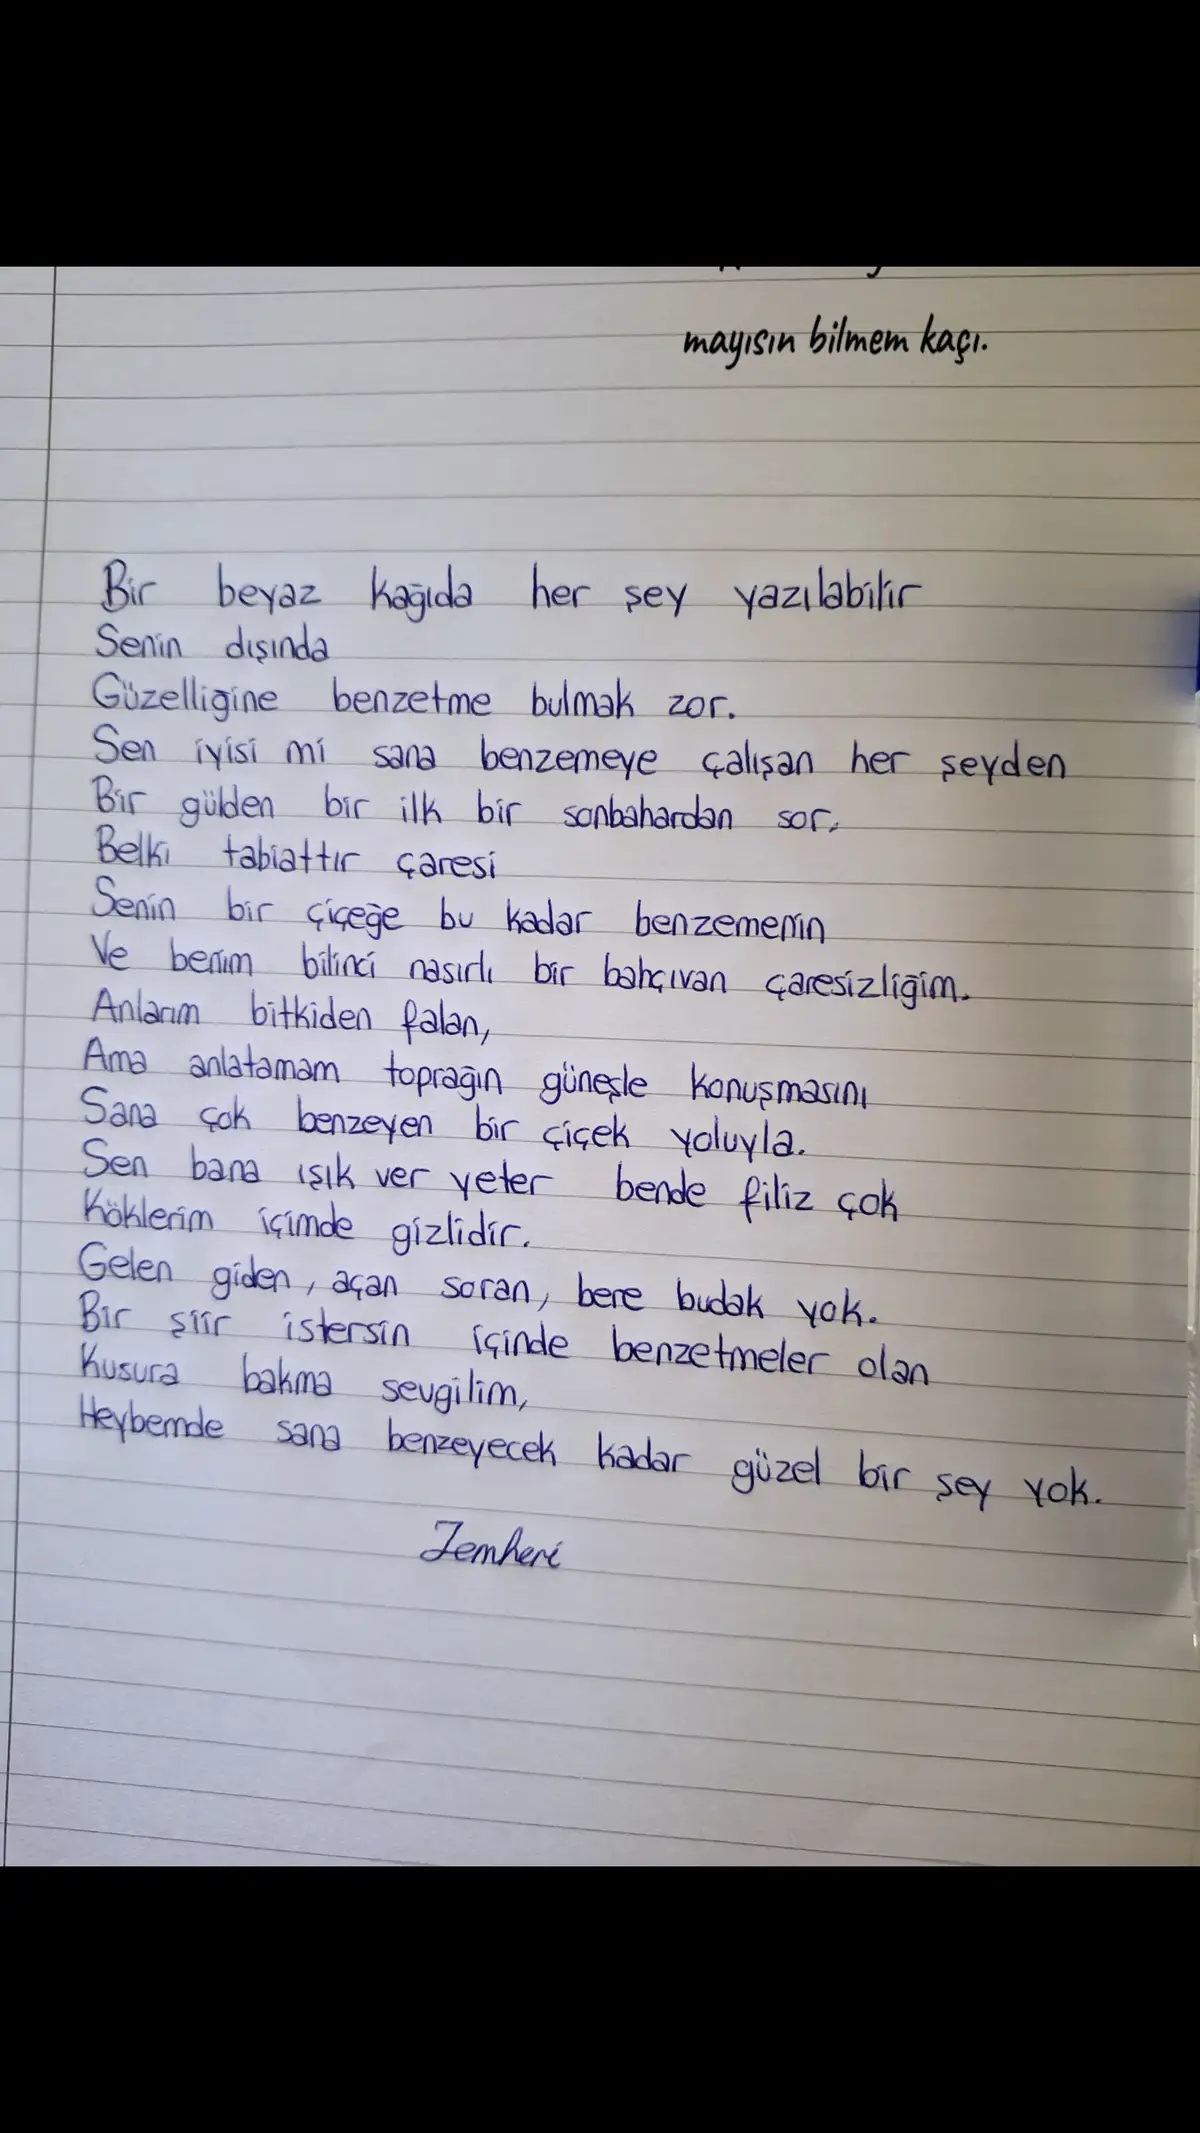 mayısın bilmem kaçı.
Bir beyaz kağıda her şey yazılabilir
Senin dışında
Güzelliğine benzetme bulmak zor.
Sen iyisi mi sana benzemeye çalışan her şeyden
Bir gülden bir ilk bir sonbahardan sor.
Belki tabiattır çaresi
Senin bir çiçeğe bu kadar benzemenin
Ve benim bilinci nasırlı bir bahçıvan çaresizliğim.
Anlarım bitkiden falan,
Ama anlatamam toprağın güneşle konuşmasını
Sana çok benzeyen bir çiçek yoluyla.
Sen bana ışık ver yeter bende filiz çok
Köklerim içimde gizlidir.
Gelen giden, açan soran, bere budak yok.
Bir şiir istersin içinde benzetmeler olan
Kusura bakma sevgilim,
Heybemde sana benzeyecek kadar güzel bir şey yok.
Zemheri